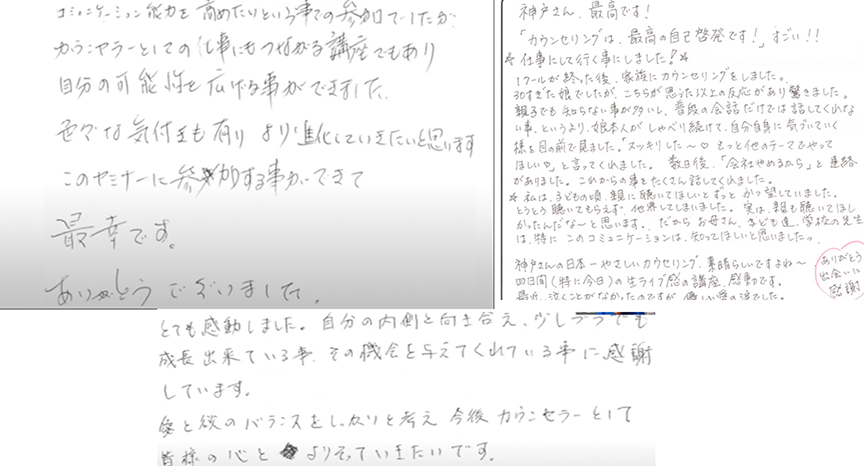 コミュニケーション能力を高めたいという事での参加でしたが
カウンセラーとしての仕事にもつながる講座でもあり
自分の可能性を広げる事ができました。
色々な気付きも有り より進化していきたいと思います
このセミナーに参加する事ができて
最幸です。
ありがとうございました。
神戸さん、最高です!
「カウンセリングは、最高の自己啓発です!」すごい!!
☆仕事にして行く事にしました!☆
1クールが終った後、家族にカウンセリングをしました。
30すぎた娘でしたが、こちらが思った以上の反応があり驚きました。
親子でも知らない事が多いし、普段の会話だけでは話してくれな
い事、というより、娘本人がしゃべり続けて、自分自身に気づいていく
様を目の前で見ました。"スッキリした~♡もっと他のテーマでやって
ほしい♡"と言ってくれました。 数日後、「会社やめるから」と連絡
がありました。これからの事をたくさん話してくれました。
☆私は、子どもの頃、親に聴いてほしいとずっと かつ望していました。
とうとう聴いてもらえず、他界してしまいました。実は、親も聴いてほし
かったんだな~と思います。だから お母さん、子ども達、学校の先生
は、特に このコミュニケーションは、知ってほしいと思いましたっ
神戸さんの日本一やさしいカウセリング、素晴らしいですよね~
四日間(特に今日)の生ライブ感の講座、感動です。
最近、泣くことがなかったのですが、優しい愛の涙でした。
ありがとう
出会いに
感謝
とても感動しました。自分の内側と向き合え、少しづつでも
成長出来ている事、その機会を与えてくれている事に感謝
しています。
愛と欲のバランスをしっかりと考え 今後カウンセラーとして
皆様の心と よりそっていきたいです。